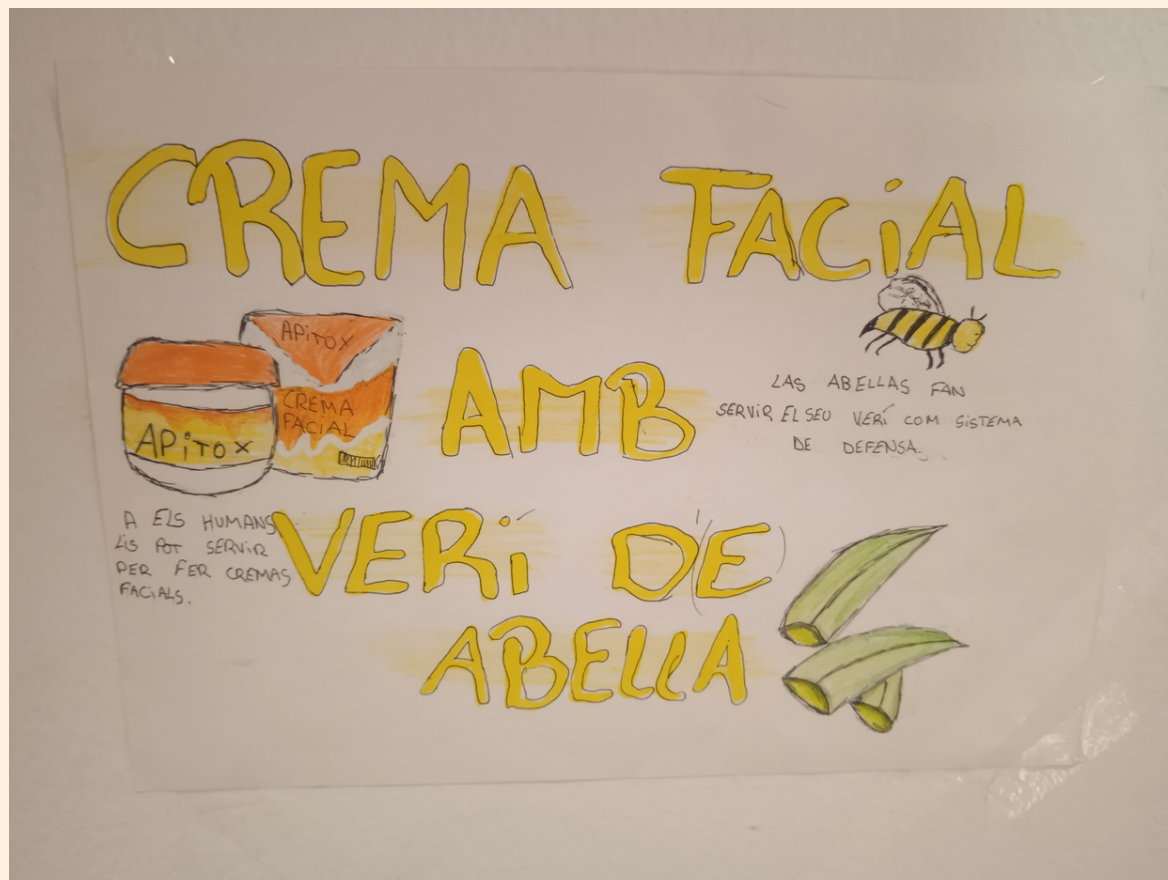 CREMA FACiAL
APiTOX
CREMA
FACIAL
APiTOX
AMB
LAS ABELLAS FAN
SERVIR EL SEU VERÍ COM SISTEMA
DE DEFENSA.
A ELS HUMANS
LIS POT SERVIR
PER FER CREMAS
FACIALS.
VERí DE
ABELLA